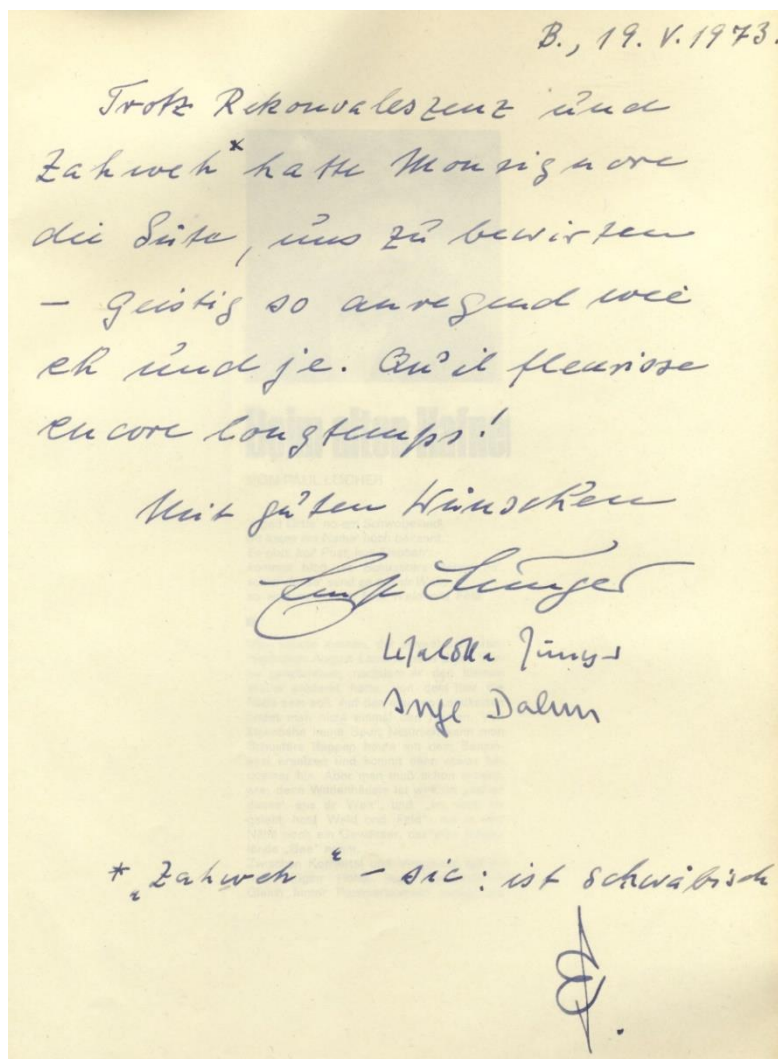 B., 19. V. 1973.
Trotz Rekonvaleszenz und
Zahweh* hatte Monsignore
die Güte, uns zu bewirten
– geistig so anregend wie
eh und je. Qu'il fleurisse
encore longtemps!
Mit guten Wünschen
Ernst Jünger
Inge Dahm
* „Zahweh“ – sic: ist schwäbisch